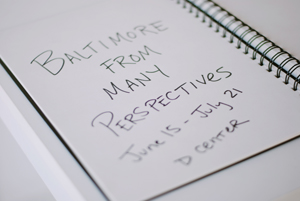 BALTIMORE
FROM
MANY
PERSPECTIVES
June 15 - July 21
D CENTER